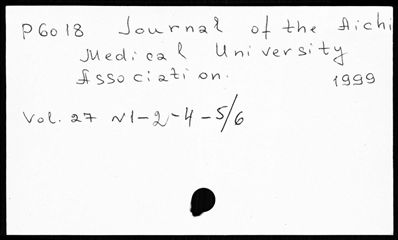 P6018 Journal of the Aichi
Medical University
Association.
1999
Vol. 27 N1-2-4-5/6